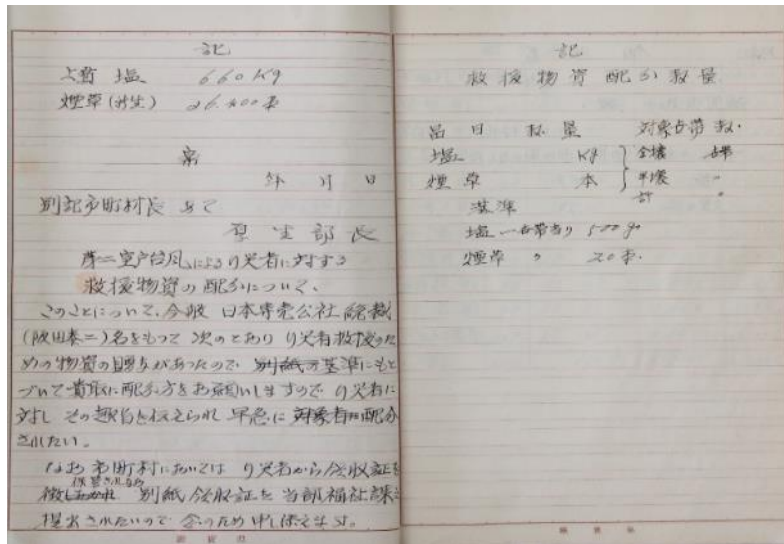 記
上質 塩 660Kg
煙草(新生) 26,400本
案
年 月 日
別記市町村長 あて
厚生部長
第二室戸台風によるり災者に対する
救援物資の配分について、
このことについて、今般 日本専売公社総裁
(阪田泰二)名をもって次のとおり り災者救援のた
めの物資の贈与があったので 別紙の基準にもと
づいて貴取に配分方をお願いしますので り災者に
対し その趣旨を伝えられ 早急に対象者に配分
されたい。
なお市町村においては り災者から領収証を
徴し 別紙領収証を当部福祉課に
提出されたいので 念のため申し添えます。
記
救援物資配分数量
品目 数量 対象世帯数
塩 Kg 全壊 世帯
煙草 本 半壊 〃
計 〃
基準
塩 一世帯当り 500g
煙草 〃 20本